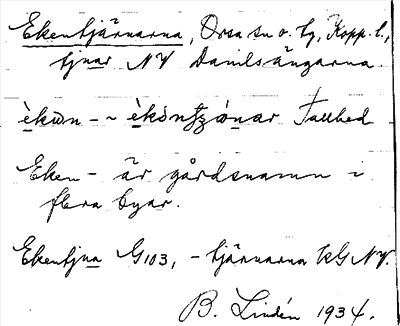 Ekentjärnarna, Orsa sn o. tg, Kopp. l.,
tjnar NV Danilsängarna.
Tallhed
Eken- är gårdsnamn i
flera byar.
Ekentjna G103, - tjärnarna kG NV.
B. Lindén 1934.